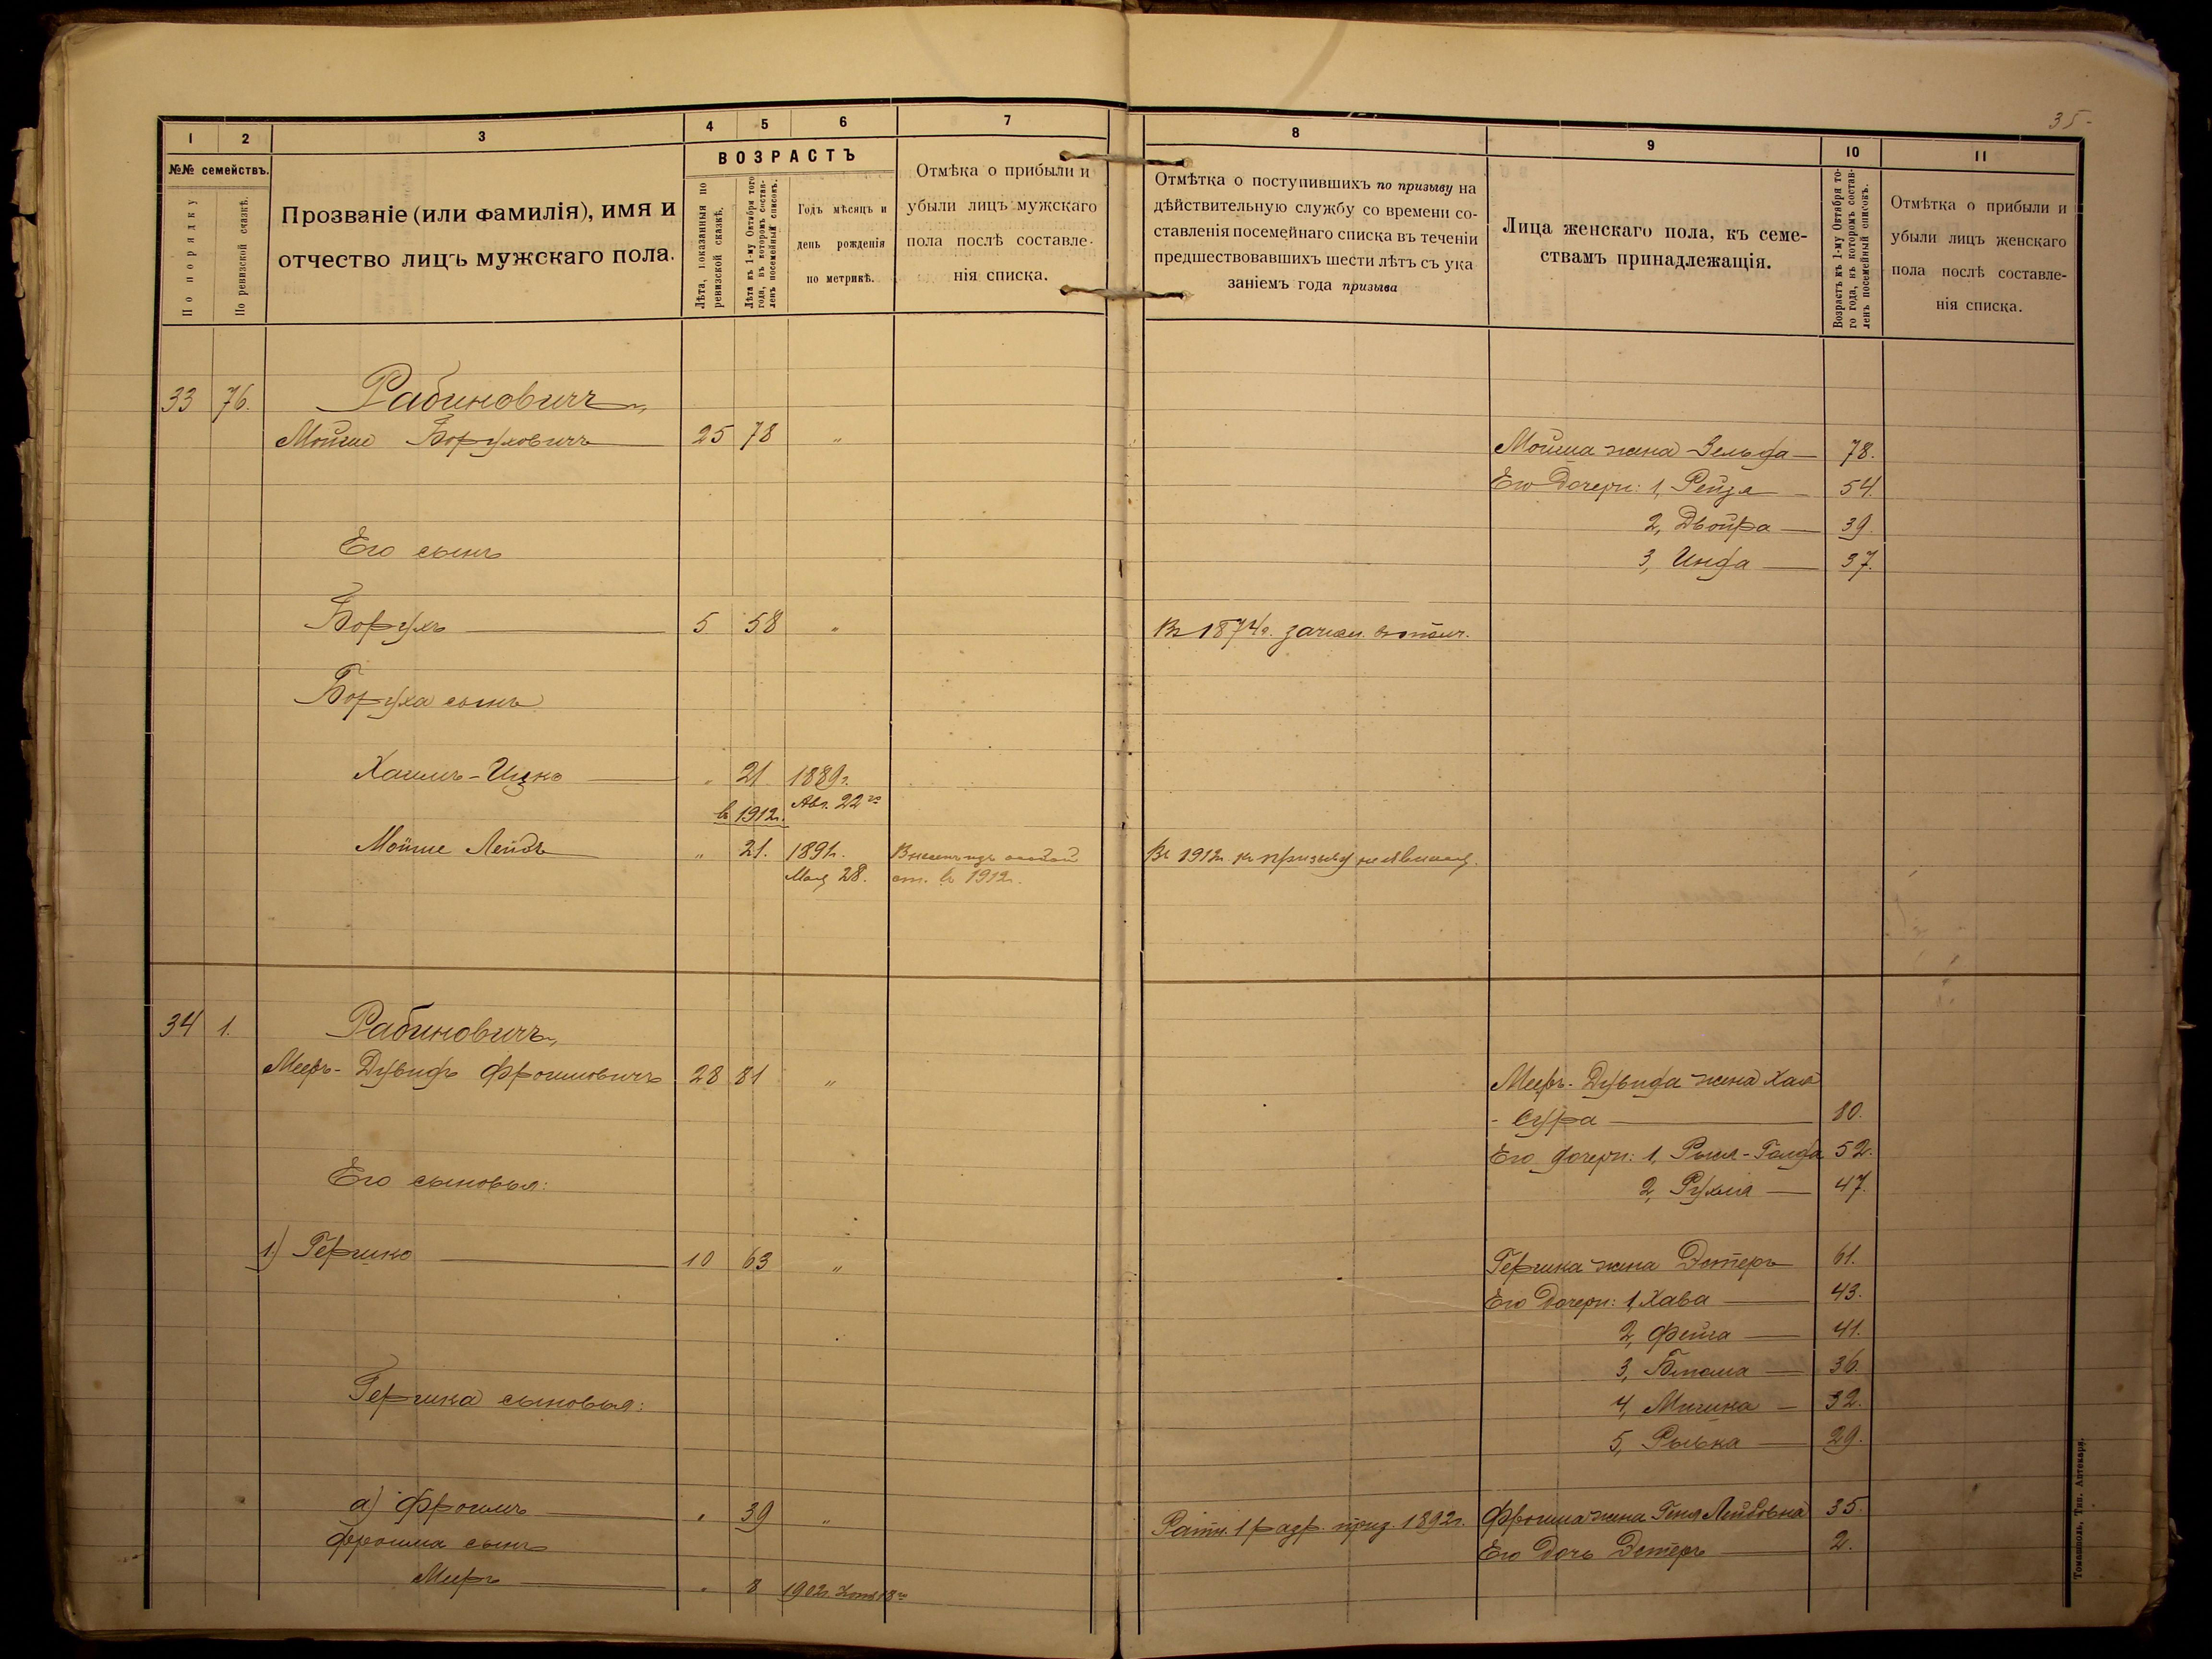 35
1 2 3 4 5 6 7
№№ семействъ.
По порядку
По ревизской сказкѣ.
Прозваніе (или фамилія), имя и
отчество лицъ мужскаго пола.
ВОЗРАСТЪ
Лѣта, показанныя по
ревизской сказкѣ.
Лѣта къ 1-му Октября того
года, въ которомъ состав-
ленъ посемейный списокъ.
Годъ мѣсяцъ и
день рожденія
по метрикѣ.
Отмѣка о прибыли и
убыли лицъ мужскаго
пола послѣ составле-
нія списка.
33 76. Рабиновичъ,
Мойше Боруховичъ 25 78 "
Его сынъ
Борухъ 5 58 "
Боруха сынъ
Хаимъ-Ицко " 21 1889г.
в 1912г. Авг. 22го
Мойше Лейбъ " 21. 1891г.
28. ст. в 1912г.
34 1. Рабиновичъ,
Мееръ-Дувидъ Фроимовичъ 28 81 "
Его сыновья:
1) Гершко 10 63 "
Гершка сыновья:
а) Фроимъ " 39 "
Фроима сынъ
Мееръ " 8 1902г. 18го
8 9 10 11
Отмѣтка о поступившихъ по призыву на
дѣйствительную службу со времени со-
ставленія посемейнаго списка въ теченіи
предшествовавшихъ шести лѣтъ съ ука
заніемъ года призыва
Лица женскаго пола, къ семе-
ствамъ принадлежащія.
Возрастъ къ 1-му Октября то-
го года, въ которомъ состав-
ленъ посемейный списокъ.
Отмѣтка о прибыли и
убыли лицъ женскаго
пола послѣ составле-
нія списка.
Мойша жена Зельда 78.
Его дочери: 1, Рейзя 54.
2, Двойра 39.
3, Инда 37.
Въ 1874г.
Въ 1912г. къ призыву не явился.
Мееръ-Дувида жена Хая
- Сура 80.
Его дочери: 1, 52.
2, Рухля 47.
Гершка жена Эстеръ 61.
Его дочери: 1, Хава 43.
2, Фейга 41.
3, 36.
4, 32.
5, Рывка 29.
Ратн. 1 разр. приз. 1892г. Фроима жена Геня Лейбовна 35.
Его дочь Эстеръ 2.
Томашполь, Тип. Аптекаря.